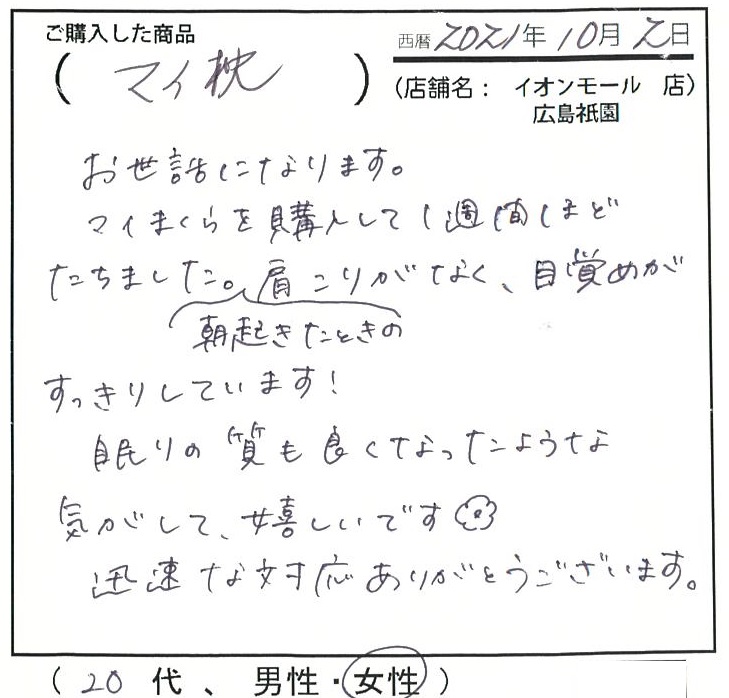 ご購入した商品
(マイ枕)
西暦2021年10月2日
(店舗名: イオンモール 店)
広島祇園
お世話になります。
マイまくらを購入して1週間ほど
たちました。肩こりがなく、目覚めが
朝起きたときの
すっきりしています!
眠りの質も良くなったような
気がして、嬉しいです
迅速な対応ありがとうございます。
(20代、男性・女性)